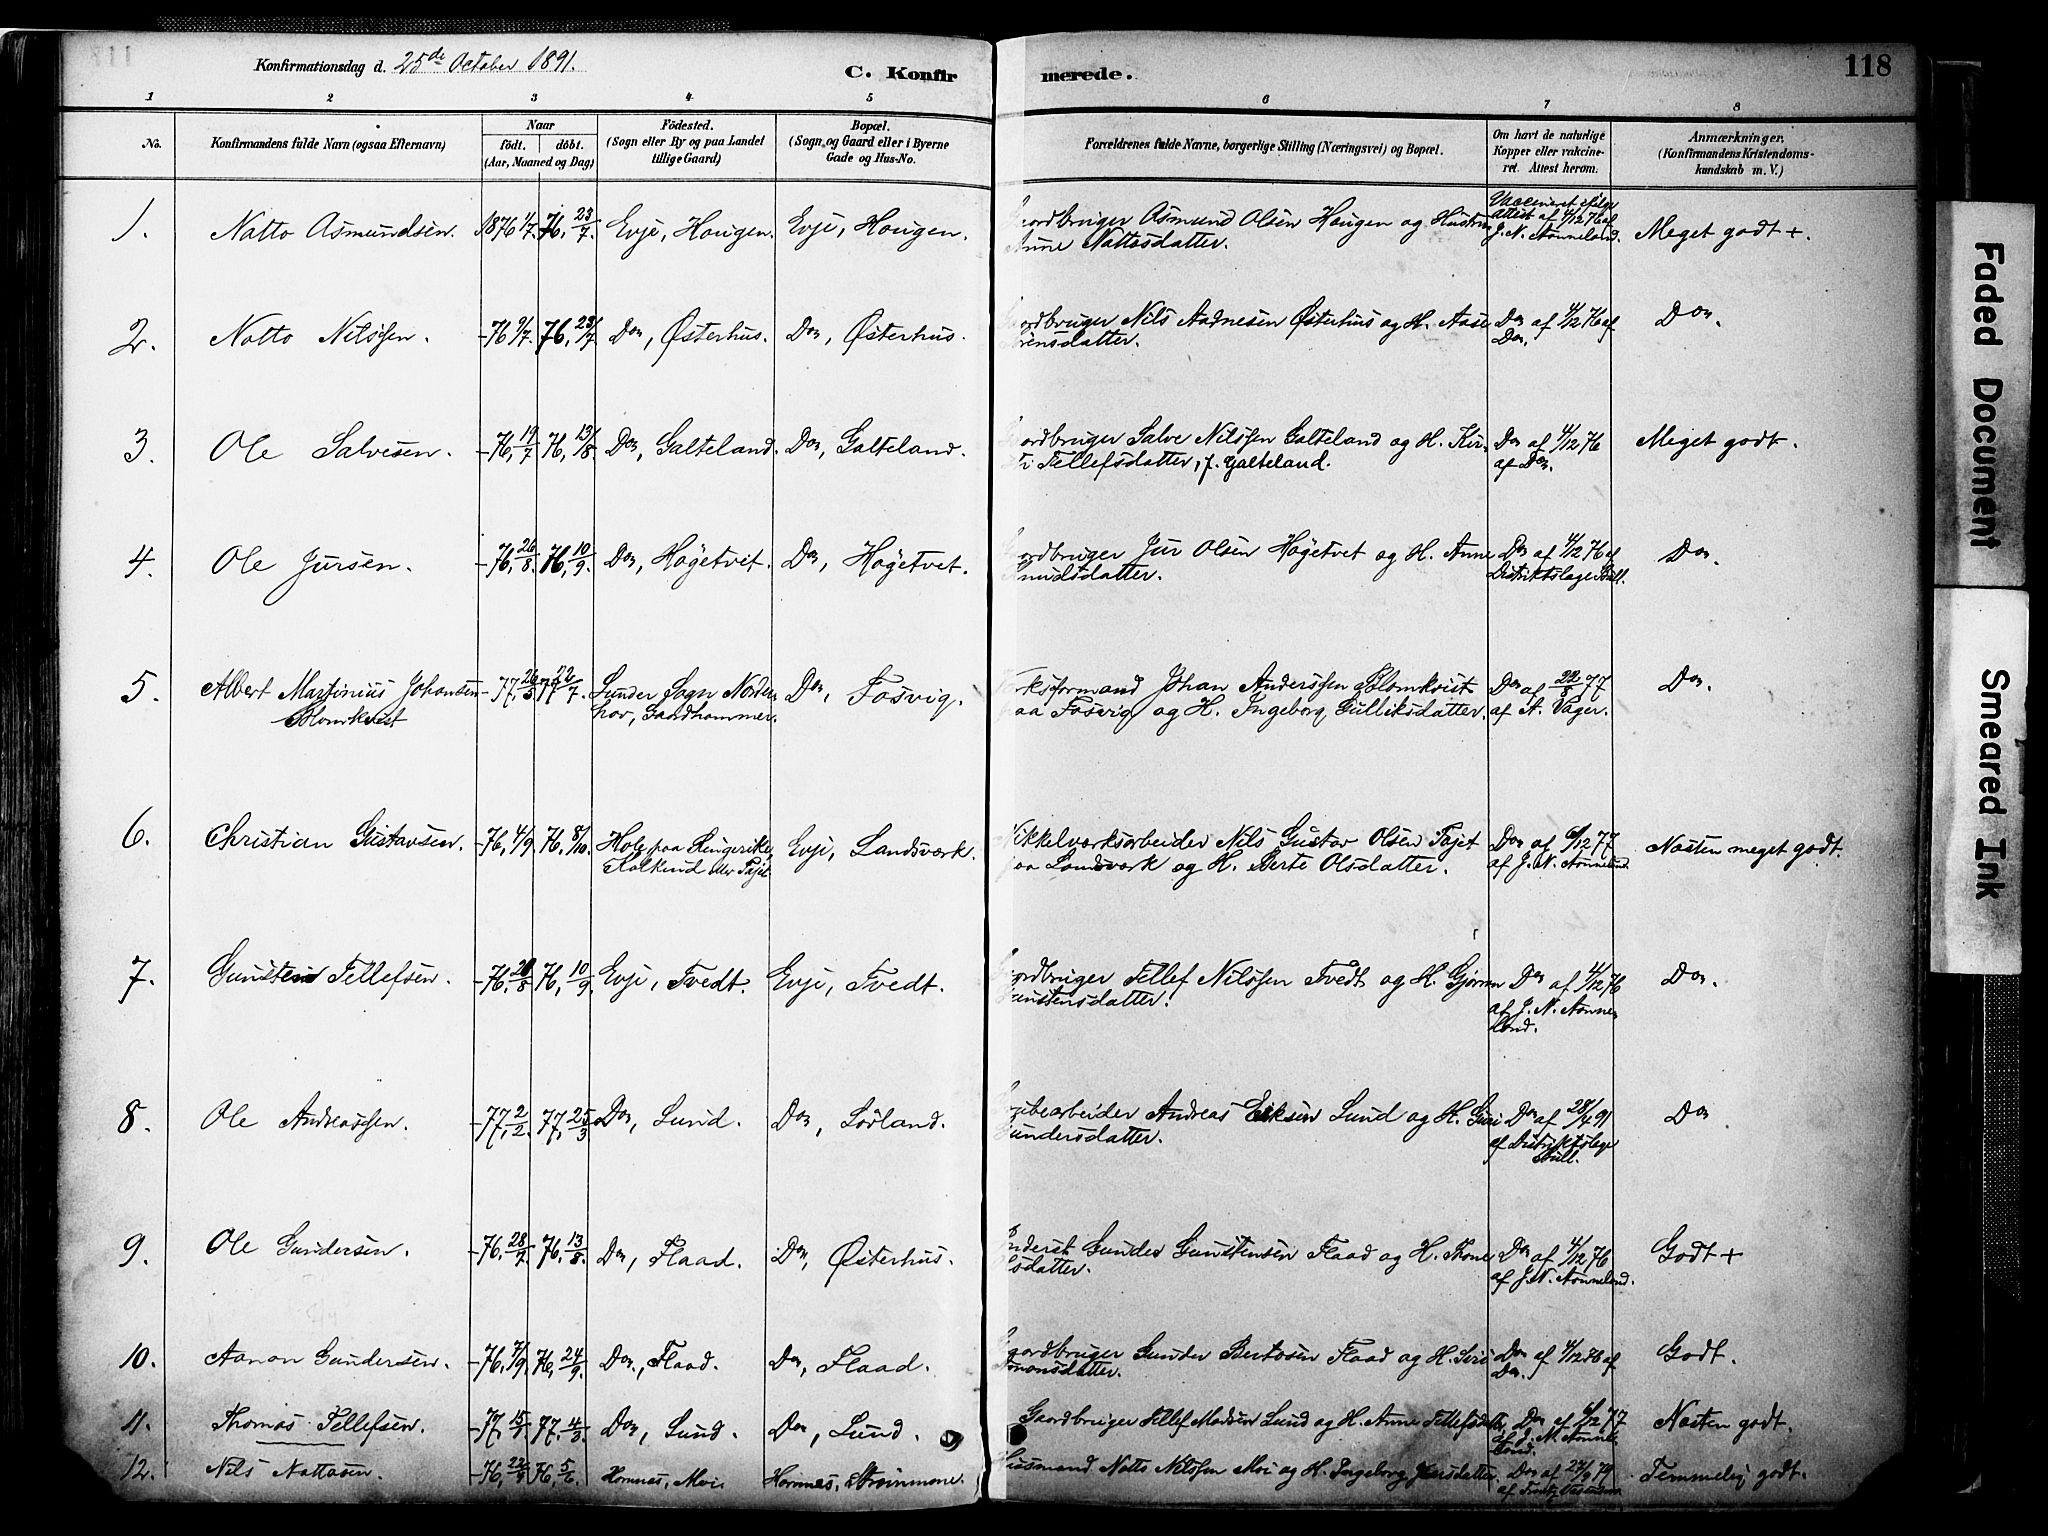 Konfirmationsdag d. 25de October 1891.
C. Konfirmerede.
118
1 2 3 4 5 6 7 8
No.
Konfirmandens fulde Navn (ogsaa Efternavn)
Naar
födt. döbt.
(Aar, Maaned og Dag)
Födested.
(Sogn eller By og paa Landet
tillige Gaard)
Bopæl.
(Sogn og Gaard eller i Byerne
Gade og Hus-No.
Forældrenes fulde Navne, borgerlige Stilling (Næringsvei) og Bopæl.
Om havt de naturlige
Kopper eller vakcine-
ret. Attest herom.
Anmærkninger.
(Konfirmandens Kristendoms-
kundskab m. V.)
1. Natto Asmundsen. 1876 1/7. 76, 23/7. Evje, Hougen. Evje, Hougen. Gaardbruger Asmund Olsen Hougen og Hustru
Anne Nattosdatter.
Vaccineret ifølge
attest af 4/12 76 af
J. N. Aanneland.
Meget godt +.
2. Natto Nilssen. -76 9/7. 76, 23/7. Do, Østerhus. Do, Østerhus. Gaardbruger Nils Aadnesen Østerhus og H. Aase
Sørensdatter.
Do af 4/12 76 af
Do.
Do.
3. Ole Salvesen. -76, 19/7 76, 13/8 Do, Galteland. Do, Galteland. Gaardbruger Salve Nilssen Galteland og H. Kir-
sti Tellefsdatter, f. Galteland.
Do af 4/12 76
af Do.
Meget godt.
4. Ole Jursen. -76, 26/8. 76, 10/9. Do, Høgetvet. Do, Høgetvet. Gaardbruger Jur Olsen Høgetvet og H. Anne
Knudsdatter.
Do af 4/12 76 af
Distriktslæge Bull.
Do.
5. Albert Martinius Johansen
Blomkvist
-77, 26/5 77 22/7. Sunder Sogn Norder-
hov, Gaardhammer.
Do, Fosvig.
Værksformand Johan Anderssen Blomkvist
paa Fosvig og H. Ingeborg Gulliksdatter.
Do af 22/8 77
af A. Vager.
Do.
6. Christian Gustavsen. -76, 4/9 76, 8/10. Hole paa Ringerike,
Evje, Landsværk.
Nikkelværksarbeider Nils Gustav Olsen Fajet
paa Landsværk og H. Berte Olsdatter.
Do af 6/12 77
af J. N. Aanneland.
Næsten meget godt.
7. Gunsten Tellefsen. -76, 20/8 76, 10/9 Evje, Tvedt. Evje, Tvedt. Gaardbruger Tellef Nilssen Tvedt og H. Gjøron
Gunstensdatter.
Do af 4/12 76
af J. N. Aanne-
land.
Do.
8. Ole Andreassen. -77, 2/2. 77, 25/3 Do, Lund. Do, Sørland. Grubearbeider Andreas Eriksen Lund og H. Guri
Gundersdatter.
Do af 28/4 91
af Distriktslæge
Bull.
Do
9. Ole Gundersen. -76, 28/7. 76, 13/8. Do, Flaad. Do, Østerhus. Inderst Gunder Gunstensen Flaad og H. Thone
Olsdatter.
Do af 4/12 76
af J. N. Aanneland.
Godt +
10. Aanon Gundersen. -76, 7/9. 76, 24/9. Do, Flaad. Do, Flaad. Gaardbruger Gunder Bertosen Flaad og H. Siri
Aanonsdatter.
Do af 4/12 76 af
Do.
Godt.
11. Thomas Tellefsen. -77, 15/1. 77. 4/3. Do, Lund. Do, Lund. Gaardbruger Tellef Madsen Lund og H. Anne Tellefsda.
Do af 6/12 77
af J. N. Aanne-
land.
Næsten godt.
12. Nils Nattosen. -76, 22/5 76, 5/6. Hornnes, Moi. Hornnes, Strømmene. Huusmand Natto Nilssen Moi og H. Ingeborg Jursdatter.
Do af 27/9 79
Temmelig godt.
Faded Document
Smeared Ink